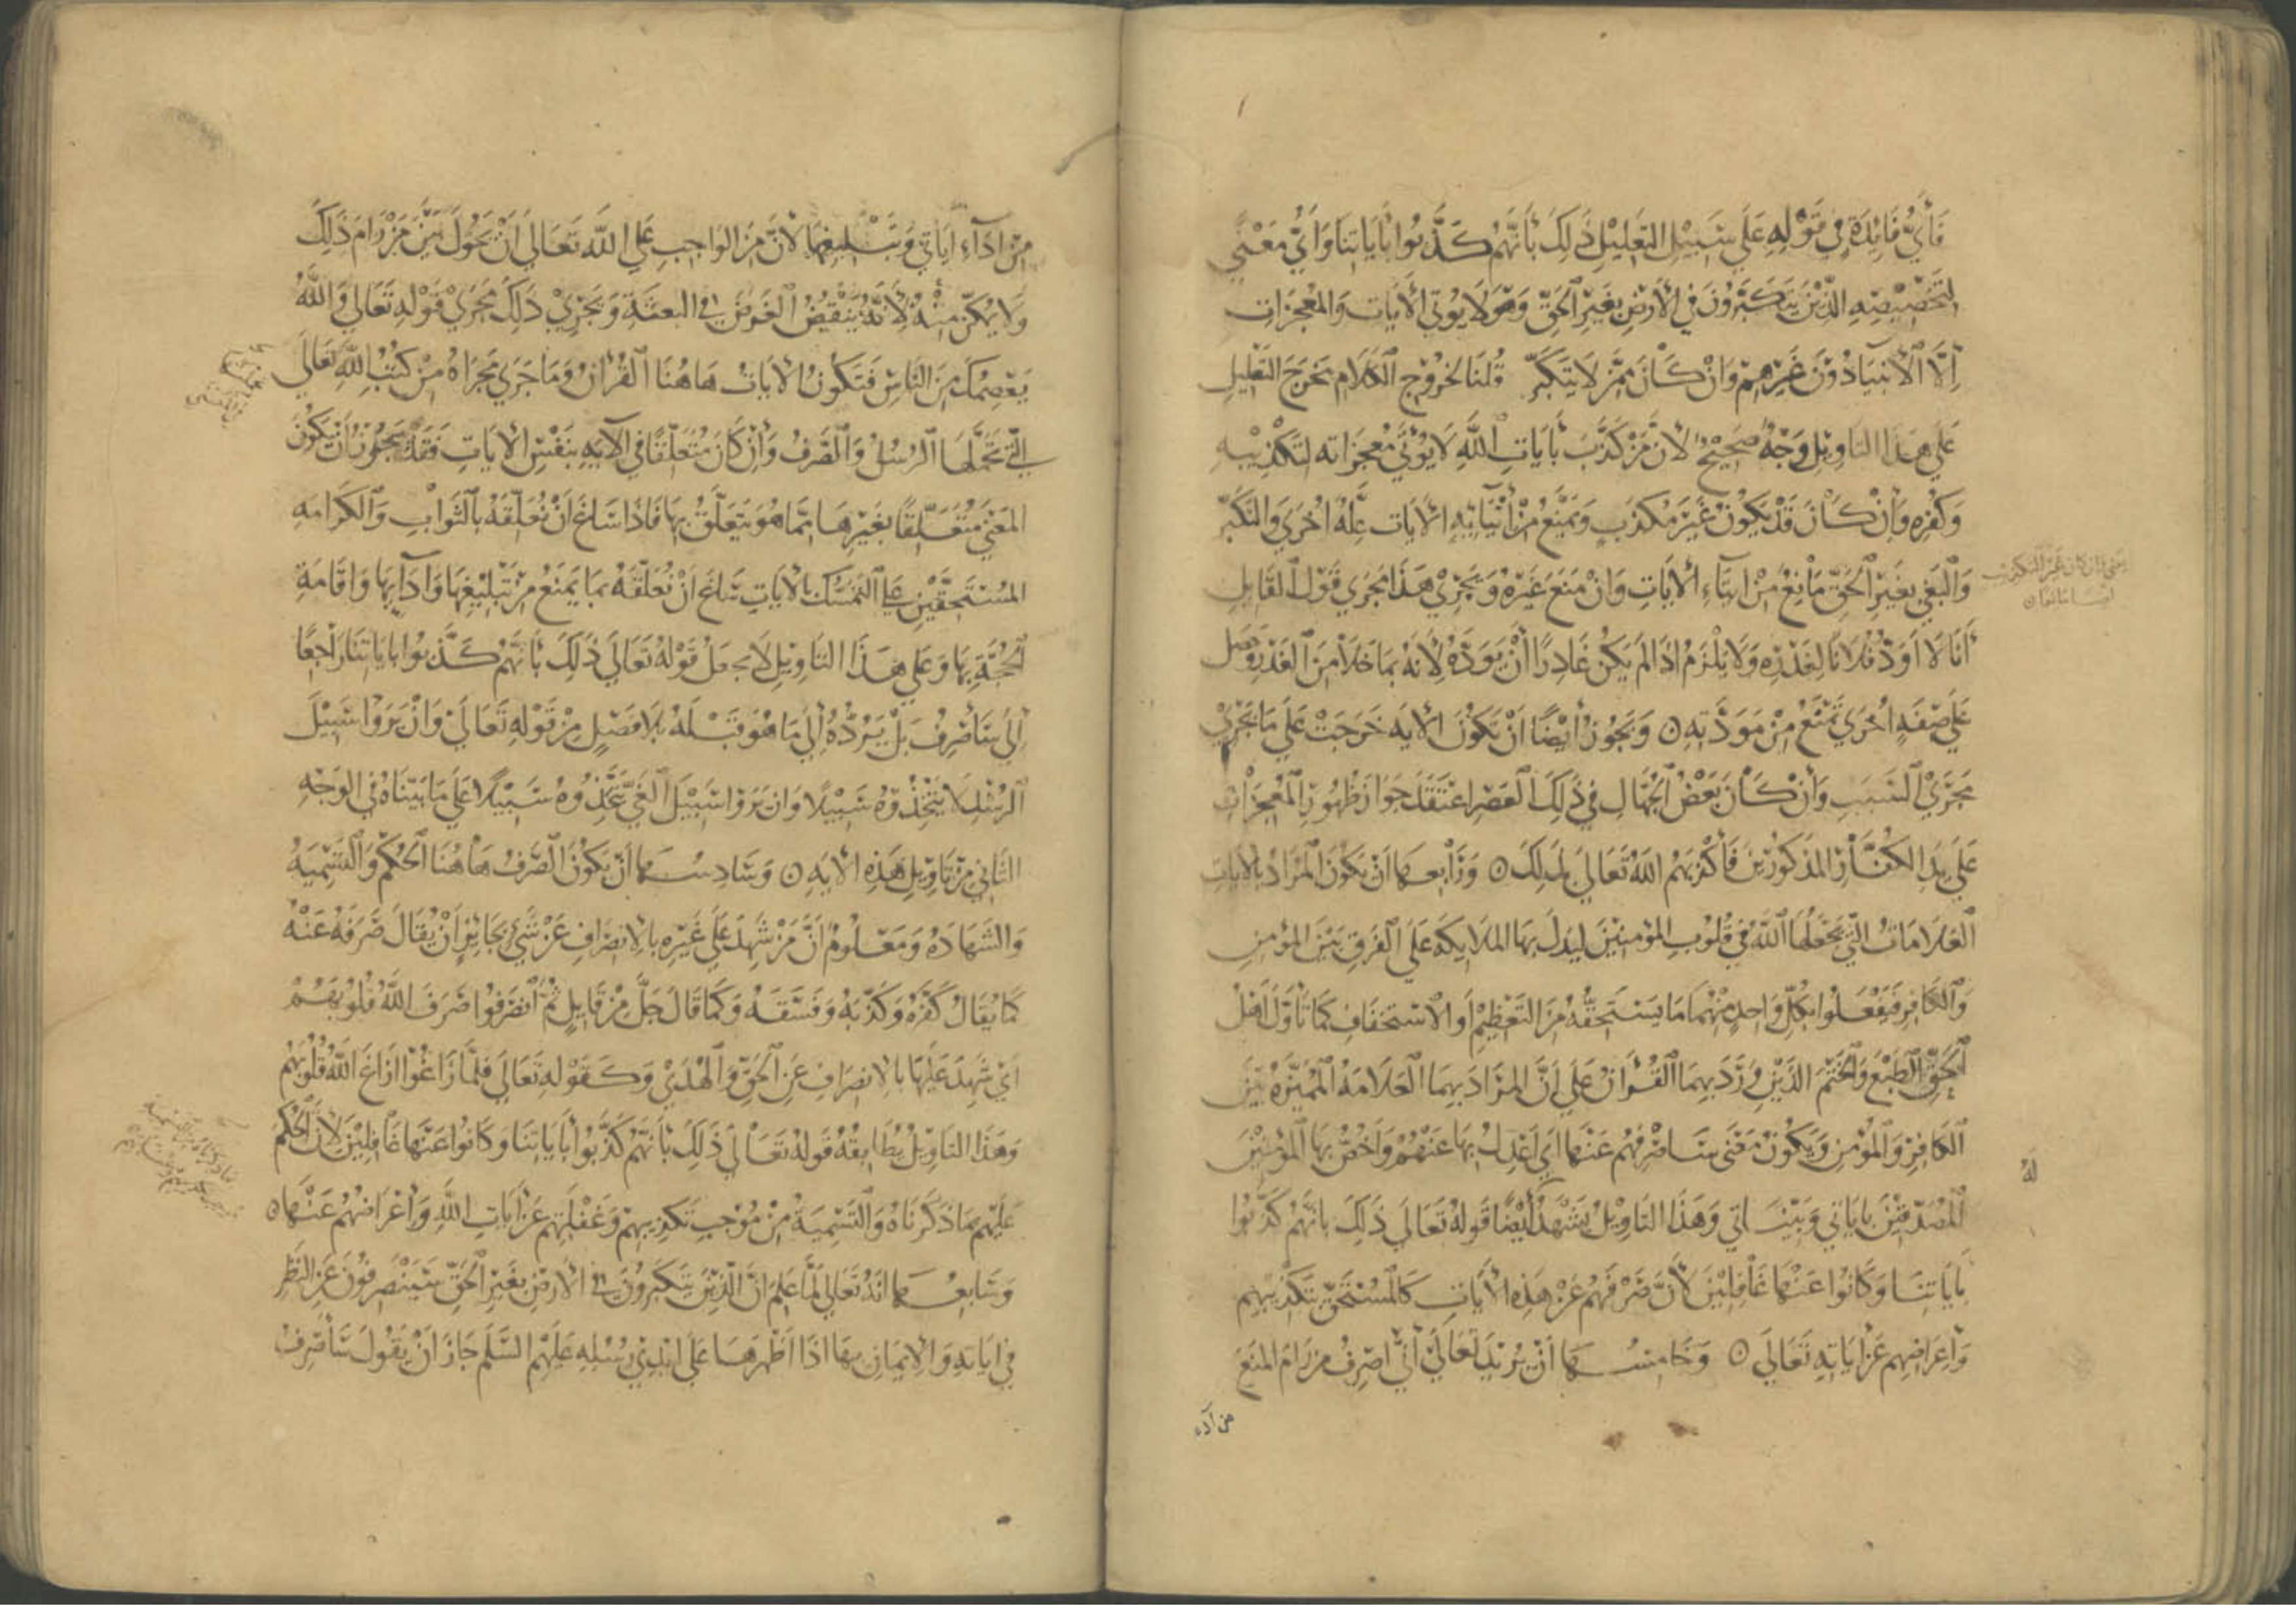 فَأَيُّ فَائِدَةٍ فِي قَوْلِهِ عَلَى سَبِيلِ التَّعْلِيلِ ذَلِكَ بِأَنَّهُمْ كَذَّبُوا بِآيَاتِنَا وَأَيُّ مَعْنًى
لِتَخْصِيصِهِ الَّذِينَ يَتَكَبَّرُونَ فِي الأَرْضِ بِغَيْرِ الْحَقِّ وَهُوَ لَا يُؤْتِي الآيَات وَالمُعْجِزَاتِ
إِلَّا الْأَنْبِيَاءَ دُونَ غَيْرِهِمْ وَإِنْ كَانَ مِمَّنْ لَا يَتَكَبَّرُ قُلْنَا لِخُرُوجِ الْكَلَامِ مَخْرَجَ التَّعْلِيلِ
عَلَى هَذَا التَّأْوِيلِ وَجْهٌ صَحِيحٌ لِأَنَّ مَنْ كَذَّبَ بِآيَاتِ اللَّهِ لَا يُؤْتَى مُعْجِزَاتِهِ لِتَكْذِيبِهِ
وَكُفْرِهِ وَإِنْ كَانَ قَدْ يَكُونُ غَيْرَ مُكَذِّبٍ وَيَمْنَعُ مِنْ إِتْيَانِهِ الآيَات عِلَّةٌ أُخْرَى وَالتَّكَبُّر
وَالْبَغْيُ بِغَيْرِ الْحَقِّ مَانِعٌ مِنْ إِيتَاءِ الآيَاتِ وَإِنْ مَنَعَ غَيْرُهُ وَيَجْرِي هَذَا مَجْرَى قَوْلِ الْقَايِلِ
أَنَا لَا أَوَدُّ فُلَانًا لِغَدْرِهِ وَلَا يَلْزَمُ إِذَا لَمْ يَكُنْ غَادِرًا أَنْ يَوَدَّهُ لِأَنَّهُ رُبَمَا خَلَا مِنَ الْغَدْرِ وَحَصَلَ
عَلَى صِفَةٍ أُخْرَى تَمْنَعُ مِنْ مَوَدَّتِهِ ۝ وَيَجُوزُ أَيْضًا أَنْ تَكُونَ الآيَة خَرَجَتْ عَلَى مَا يَجْرِي
مَجْرَى السَّبَبِ وَأَنْ كَانَ بَعْضُ الْجُهَّالِ فِي ذَلِكَ الْعَصْرِ اعْتَقَدَ جَوَازَ ظُهُورِ الْمُعْجِزَاتِ
عَلَى يَدِ الْكُفَّارِ المَذْكُورِينَ فَأَكْذَبَهُمُ اللَّهُ تَعَالَى بِذَلِكَ ۝ وَرَابِعهَا أَنْ يَكُونَ الْمُرَادُ بِالآيَاتِ
الْعَلَامَاتُ الَّتِي يَجْعَلُهَا اللَّهُ فِي قُلُوبِ المُؤْمِنِينَ لِيَدُلَّ بِهَا المَلَايِكَة عَلَى الْفَرْقِ بَيْنَ المُؤْمِنِ
وَالْكَافِرِ فَيَفْعَلُوا بِكُلِّ وَاحِدٍ مِنْهُمَا مَا يَسْتَحِقُّهُ مِنَ التَّعْظِيمِ أَوِ الاسْتِخْفَافِ كَمَا تَأَوَّلَ أَهْلُ
الْحَقِّ الطَّبْعَ وَالْخَتْمَ الَّذَيْنِ وَرَدَ بِهِمَا الْقُرْآنُ عَلَى أَنَّ المُرَادَ بِهِمَا الْعَلَامَةُ الْمُمَيِّزَةُ بَيْنَ
الْكَافِرِ وَالْمُؤْمِنِ وَيَكُونُ مَعْنَى سَأَصْرِفُهُمْ عَنْهَا أَيْ أَعْدِلُ بِهَا عَنْهُمْ وَأَخُصُّ بِهَا الْمُؤْمِنِينَ
الْمُصَدِّقِينَ بِآيَاتِي وَبَيِّنَاتِي وَهَذَا التَّأْوِيلُ يَشْهَدُ أَيْضًا قَوْلُهُ تَعَالَى ذَلِكَ بِأَنَّهُمْ كَذَّبُوا
بِآيَاتِنَا وَكَانُوا عَنْهَا غَافِلِينَ لِأَنَّ صَرْفَهُمْ عَنْ هَذِهِ الْآيَاتِ كَالْمُسْتَحَقِّ بِتَكْذِيبِهِمْ
وَإِعْرَاضِهِمْ عَنْ آيَاتِهِ تَعَالَى ۝ وَخَامِسهَا أَنْ يُرِيدَ تَعَالَى أَنِّي أَصْرِفُ مَنْ رَامَ المَنْعَ
من أداء
له
مِنْ أَدَآءِ آيَاتِي وَتَبْلِيغِهَا لِأَنَّ مِنَ الوَاجِبِ عَلَى اللَّهِ تَعَالَى أَنْ يَحُولَ بَيْنَ مَنْ رَامَ ذَلِكَ
وَلَا يُمَكِّنَ مِنْهُ لِأَنَّهُ يَنْقُضُ الْغَرَضَ فِي البِعْثَةِ وَيَجْرِي ذَلِكَ مَجْرَى قَوْلِهِ تَعَالَى وَاللَّهُ
يَعْصِمُكَ مِنَ النَّاسِ فَتَكُونُ الآيَاتُ هَاهُنَا الْقُرْآنُ وَمَا جَرَى مَجْرَاهُ مِنْ كُتُبِ اللَّهِ تَعَالَى
الَّتِي تَحَمَّلَهَا الرُّسُلُ وَالْصَّرْفُ وَإِنْ كَانَ مُتَعَلِّقًا فِي الآيَةِ بِنَفْسِ الآيَاتِ فَقَدْ يَجُوزُ أَنْ يَكُونَ
المَعْنَى مُتَعَلِّقًا بِغَيْرِهَا مِمَّا هُوَ يَتَعَلَّقُ بِهَا فَإِذَا سَاغَ أَنْ نُعَلِّقَهُ بِالثَّوَابِ وَالْكَرَامَةِ
المُسْتَحَقَّيْنِ عَلَى التَّمَسُّكِ بِالآيَاتِ سَاغَ أَنْ نُعَلِّقَهُ بِمَا يَمْنَعُ مِنْ تَبْلِيغِهَا وَأَدَآيِهَا وَإِقَامَةِ
الْحُجَّةِ بِهَا وَعَلَى هَذَا التَّأْوِيلِ لَا نَجْعَلُ قَوْلَهُ تَعَالَى ذَلِكَ بِأَنَّهُمْ كَذَّبُوا بِآيَاتِنَا رَاجِعًا
إِلَى سَأَصْرِفُ بَلْ يَرُدُّهُ إِلَى مَا هُوَ قَبْلَهُ بِلَا فَصْلٍ مِنْ قَوْلِهِ تَعَالَى وَإِنْ يَرَوْا سَبِيلَ
الرُّشْدِ لَا يَتَّخِذُوهُ سَبِيلًا وَإِنْ يَرَوْا سَبِيلَ الْغَيِّ يَتَّخِذُوهُ سَبِيلًا عَلَى مَا بَيَّنَّاهُ فِي الوَجْهِ
الثَّانِي مِنْ تَأْوِيلِ هَذِهِ الآيَةِ ۝ وَسَادِسهَا أَنْ يَكُونَ الصَّرْفُ هَاهُنَا الْحُكْمَ وَالْتَّسْمِيَةَ
وَالشَّهَادَةَ وَمَعْلُومٌ أَنَّ مَنْ شَهِدَ عَلَى غَيْرِهِ بِالِانْصِرَافِ عَنْ شَيْءٍ جَائِزٌ أَنْ يُقَالَ صَرَفَهُ عَنْهُ
كَمَا يُقَالُ كَفَّرَهُ وَكَذَّبَهُ وَفَسَّقَهُ وَكَمَا قَالَ جَلَّ مِنْ قَايِلٍ ثُمَّ انْصَرَفُوا صَرَفَ اللَّهُ قُلُوبَهُمْ
أَيْ شَهِدَ عَلَيْهَا بِالِانْصِرَافِ عَنِ الْحَقِّ وَالْهُدَى وَكَقَوْلِهِ تَعَالَى فَلَمَّا زَاغُوا أَزَاغَ اللَّهُ قُلُوبَهُمْ
وَهَذَا التَّأْوِيلُ يُطَابِقُهُ قَوْلُهُ تَعَالَى ذَلِكَ بِأَنَّهُمْ كَذَّبُوا بِآيَاتِنَا وَكَانُوا عَنْهَا غَافِلِينَ لِأَنَّ الْحُكْمَ
عَلَيْهِمْ بِمَا ذَكَرْنَاهُ وَالْتَّسْمِيَةَ مِنْ مُوجِبِ تَكْذِيبِهِمْ وَغَفْلَتِهِمْ عَنْ آيَاتِ اللَّهِ وَإِعْرَاضِهِمْ عَنْهَا ۝
وَسَابِعهَا أَنَّهُ تَعَالَى لَمَّا عَلِمَ أَنَّ الَّذِينَ يَتَكَبَّرُونَ فِي الأَرْضِ بِغَيْرِ الْحَقِّ سَيَنْصَرِفُونَ عَنِ النَّظَرِ
فِي آيَاتِهِ وَالْإِيمَانِ بِهَا إِذَا أَظْهَرَهَا عَلَى أَيْدِي رُسُلِهِ عَلَيْهِمُ السَّلَم جَازَ أَنْ يَقُولَ سَأَصْرِفُ